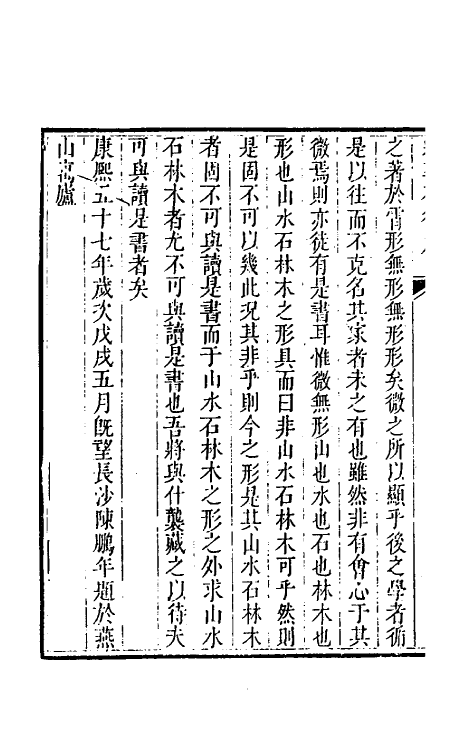 之著於霄形無形無形形矣微之所以顯乎後之學者循
是以往而不克名其家者未之有也雖然非有會心于其
微焉則亦徒有是書耳惟微無形山也水也石也林木也
形也山水石林木之形具而曰非山水石林木可乎然則
是固不可以幾此況其非乎則今之形是其山水石林木
者固不可與讀是書而于山水石林木之形之外求山水
石林木者尤不可與讀是書也吾將與什襲藏之以待夫
可與讀是書者矣
康熙五十七年歲次戊戌五月既望長沙陳鵬年題於燕
山寓廬